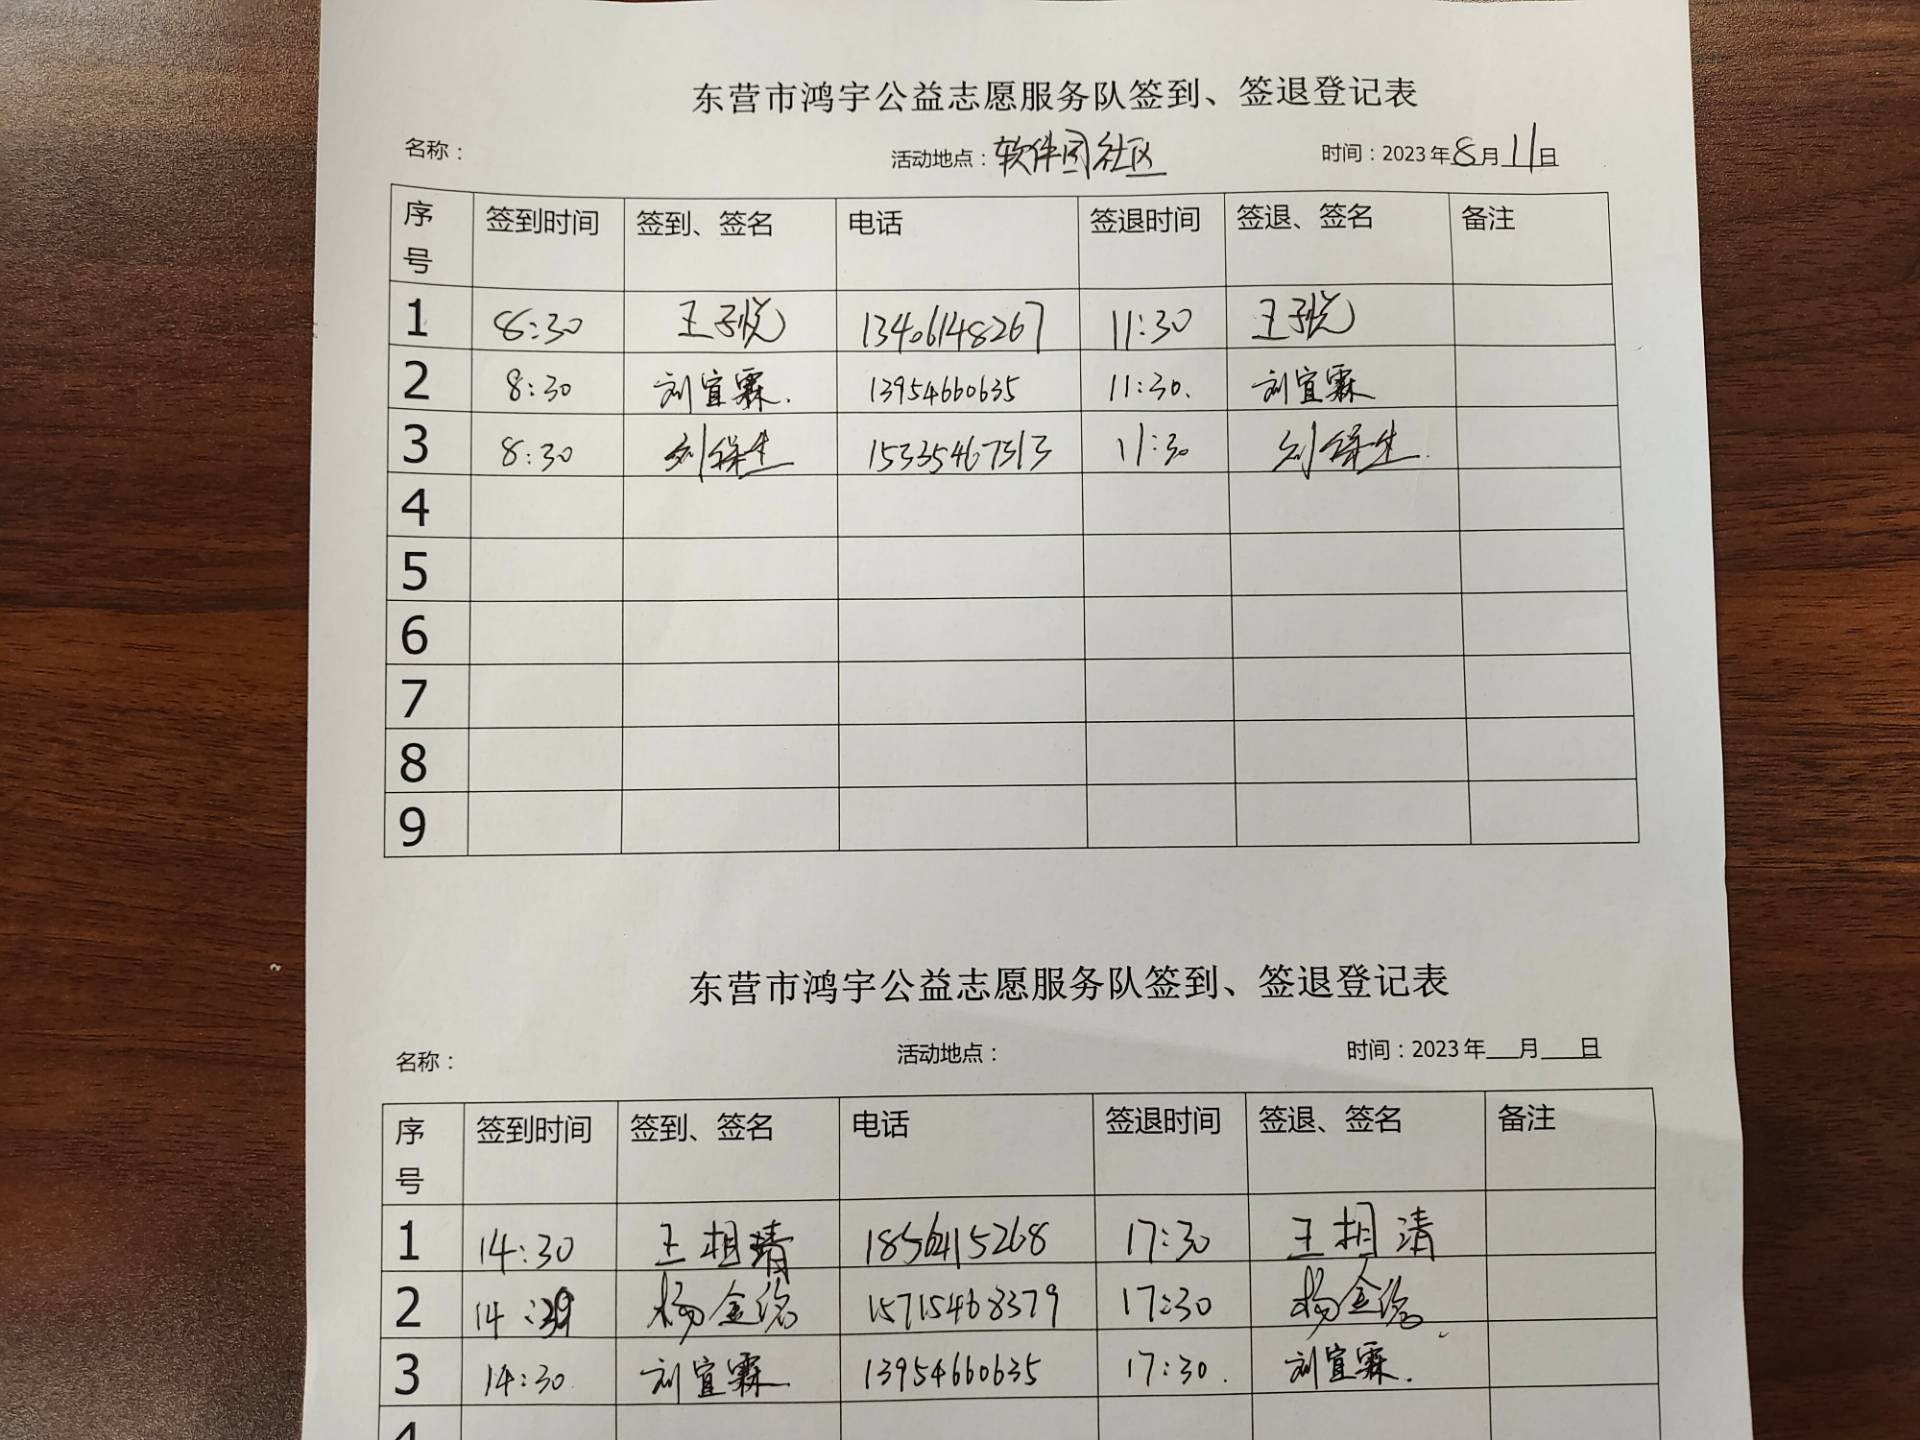 东营市鸿宇公益志愿服务队签到、签退登记表
名称： 活动地点：软件园社区 时间：2023年8月11日
序号 签到时间 签到、签名 电话 签退时间 签退、签名 备注
1 8:30 王子悦 13406148267 11:30 王子悦
2 8:30 刘宜霖. 13954660635 11:30. 刘宜霖
3 8:30 刘 生 15335467513 11:30 刘 生.
4
5
6
7
8
9
东营市鸿宇公益志愿服务队签到、签退登记表
名称： 活动地点： 时间：2023年___月___日
序号 签到时间 签到、签名 电话 签退时间 签退、签名 备注
1 14:30 王相清 17:30 王相清
2 杨金 15715468379 17:30 杨金
3 14:30. 刘宜霖 13954660635 17:30. 刘宜霖.
4